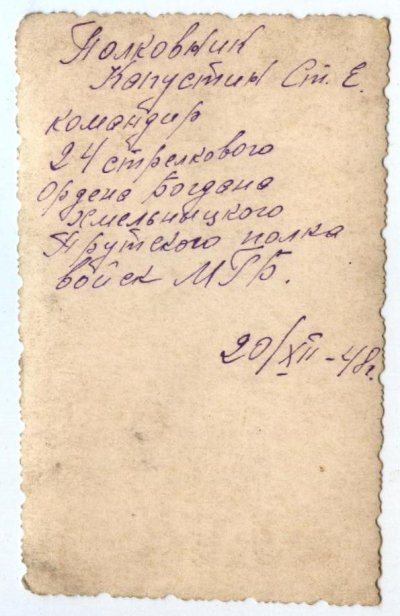 Полковник
Капустин Ст. Е.
командир
24 стрелкового
ордена Богдана
Хмельницкого
Прутского полка
войск МГБ.
20/XII-48г.